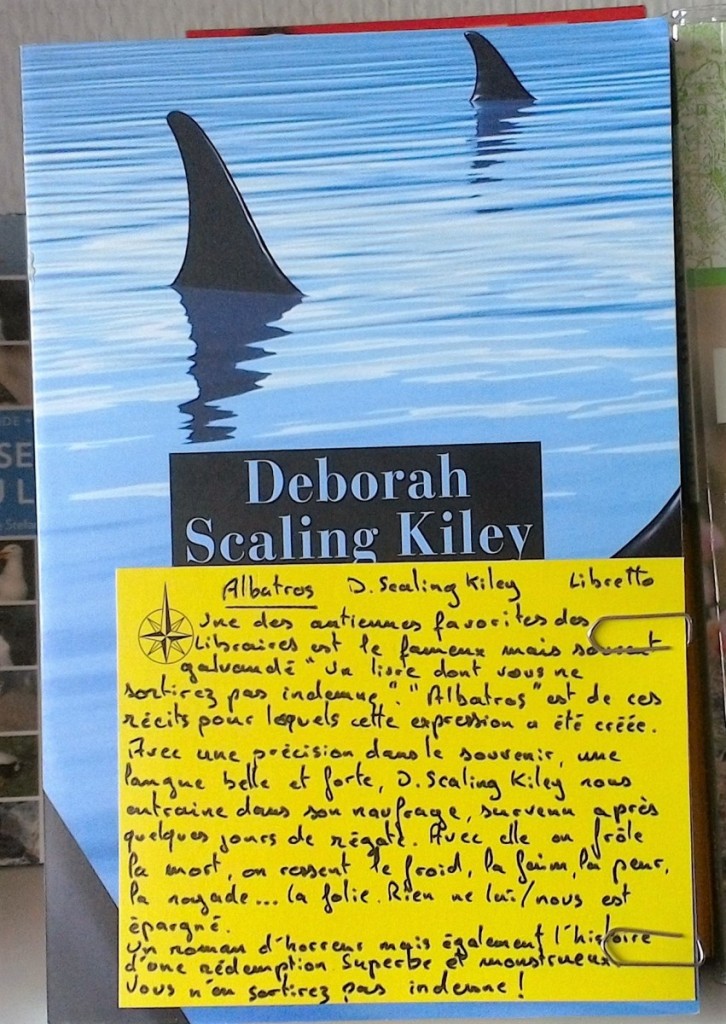 Deborah
Scaling Kiley
Albatros D. Scaling Kiley Libretto
Une des antiennes favorites des
Libraires est le fameux mais souvent
galvaudé " Un livre dont vous ne
sortirez pas indemne". "Albatros" est de ces
récits pour lequels cette expression a été créée.
Avec une précision dans le souvenir, une
langue belle et forte, D. Scaling Kiley nous
entraine dans son naufrage, survenu après
quelques jours de régate. Avec elle on frôle
la mort, on ressent le froid, la faim, la peur,
la noyade... la folie. Rien ne lui/nous est
épargné.
Un roman d'horreur mais également l'histoire
d'une rédemption superbe et monstrueuse.
Vous n'en sortirez pas indemne !
SE
U L